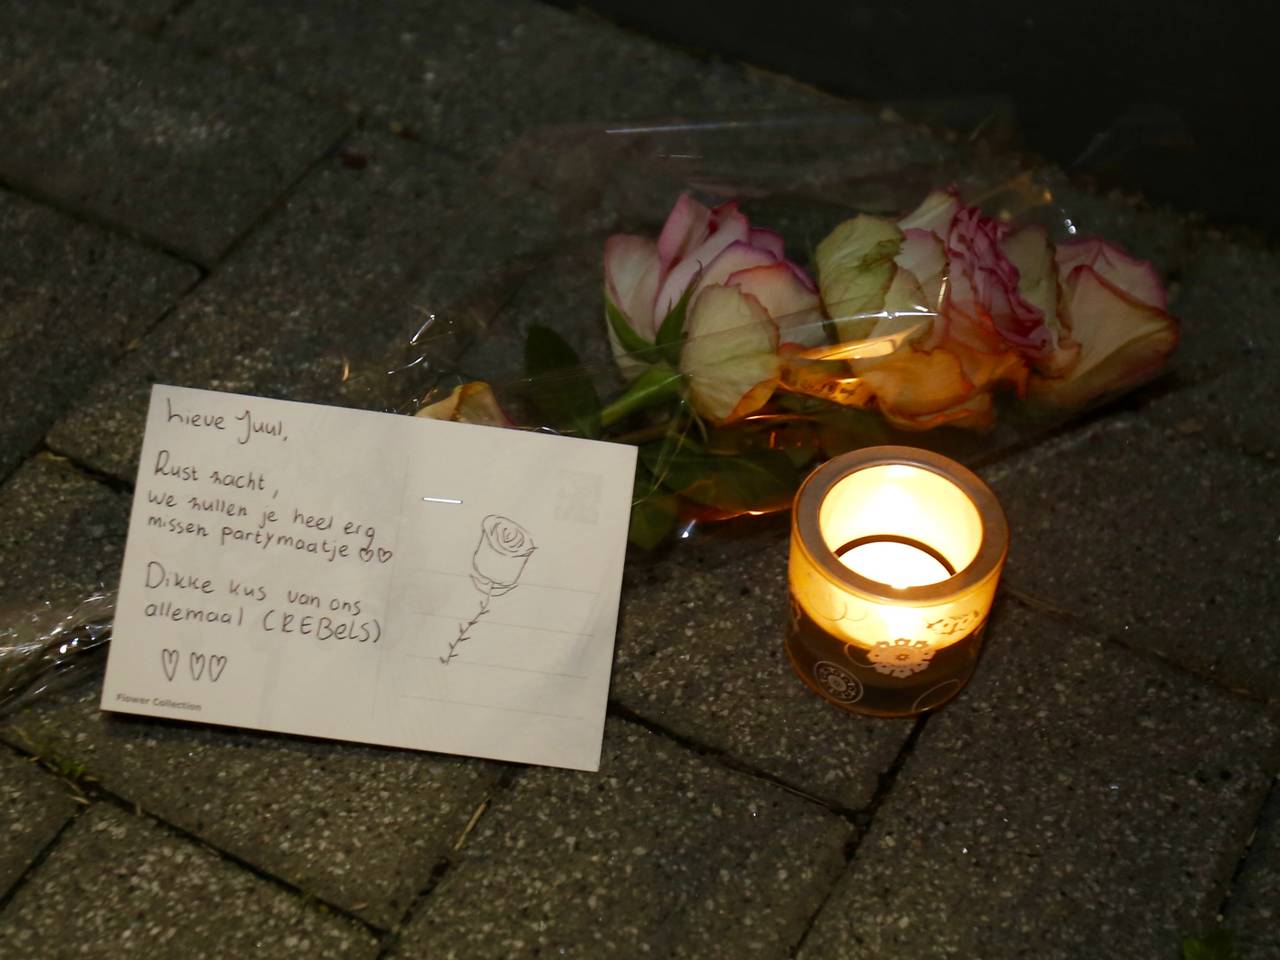 Lieve Juul,
Rust zacht,
we zullen je heel erg
missen partymaatje ♡♡
Dikke kus van ons
allemaal (REBELS)
♡ ♡♡
Flower Collection